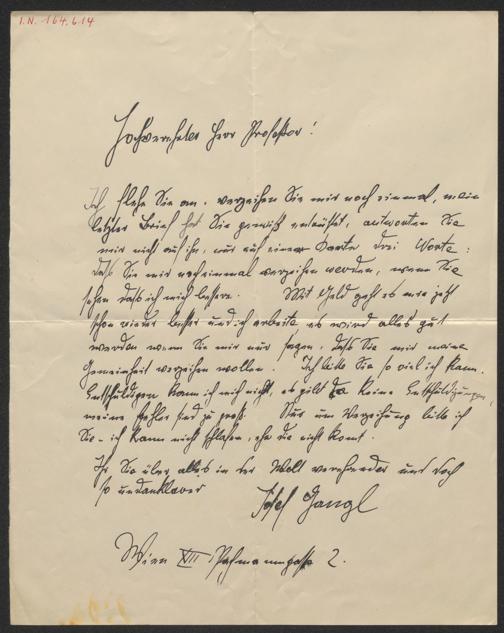 I.N. 164.614
Hochverehrter Herr Professor!
Ich flehe Sie an, verzeihen Sie mir noch einmal, mein
letzter Brief hat Sie gewiß enttäuscht, antworten Sie
mir nicht auf ihn, nur auf einer Karte drei Worte:
daß Sie mir nocheinmal verzeihen werden, wenn Sie
sehen daß ich mich bessere. Mit Geld geht es mir jetzt
schon wieder besser und ich arbeite, es wird alles gut
werden wenn Sie mir nur sagen, daß Sie mir meine
Gemeinheit verzeihen wollen. Ich bitte Sie so viel ich kann.
Entschuldigen kann ich mich nicht, es gibt da keine Entschuldigungen,
meine Fehler sind zu groß. Nur um Verzeihung bitte ich
Sie - ich kann nicht schlafen, ehe die nicht kommt.
Ihr Sie über alles in der Welt verehrender und doch
so undankbarer
Josef Gangl
Wien XII 2.